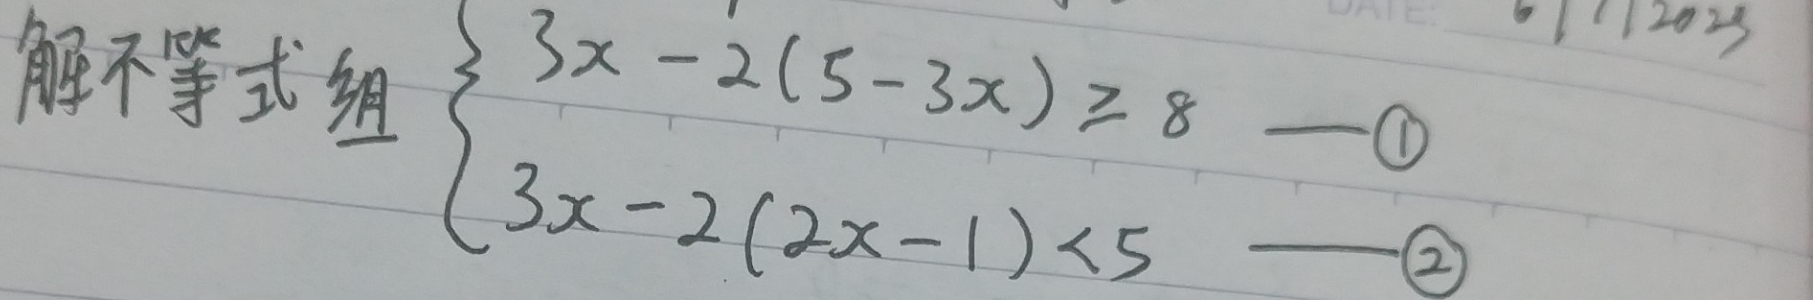 DATE: 6/1/2023
解不等式组 { 3x - 2(5 - 3x) ≥ 8 —①
3x - 2(2x - 1) < 5 —②